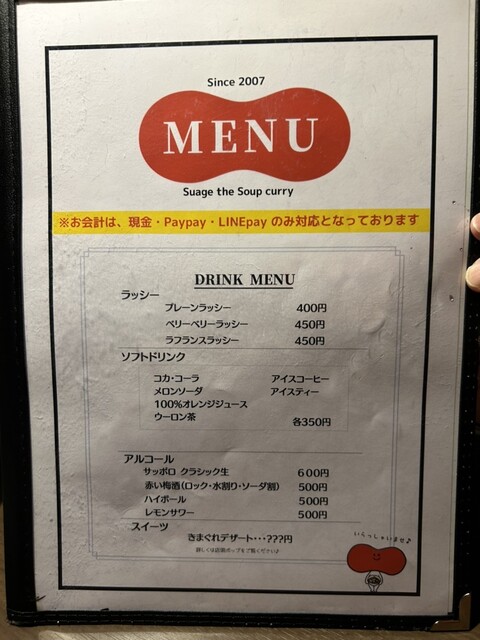 Since 2007
MENU
Suage the Soup curry
※お会計は、現金・Paypay・LINEpay のみ対応となっております
DRINK MENU
ラッシー
プレーンラッシー 400円
ベリーベリーラッシー 450円
ラフランスラッシー 450円
ソフトドリンク
コカ・コーラ アイスコーヒー
メロンソーダ アイスティー
100%オレンジジュース
ウーロン茶 各350円
アルコール
サッポロ クラシック生 600円
赤い梅酒(ロック・水割り・ソーダ割) 500円
ハイボール 500円
レモンサワー 500円
スイーツ
きまぐれデザート・・・???円
詳しくは店頭ポップをご覧ください♪
いらっしゃいませ♪